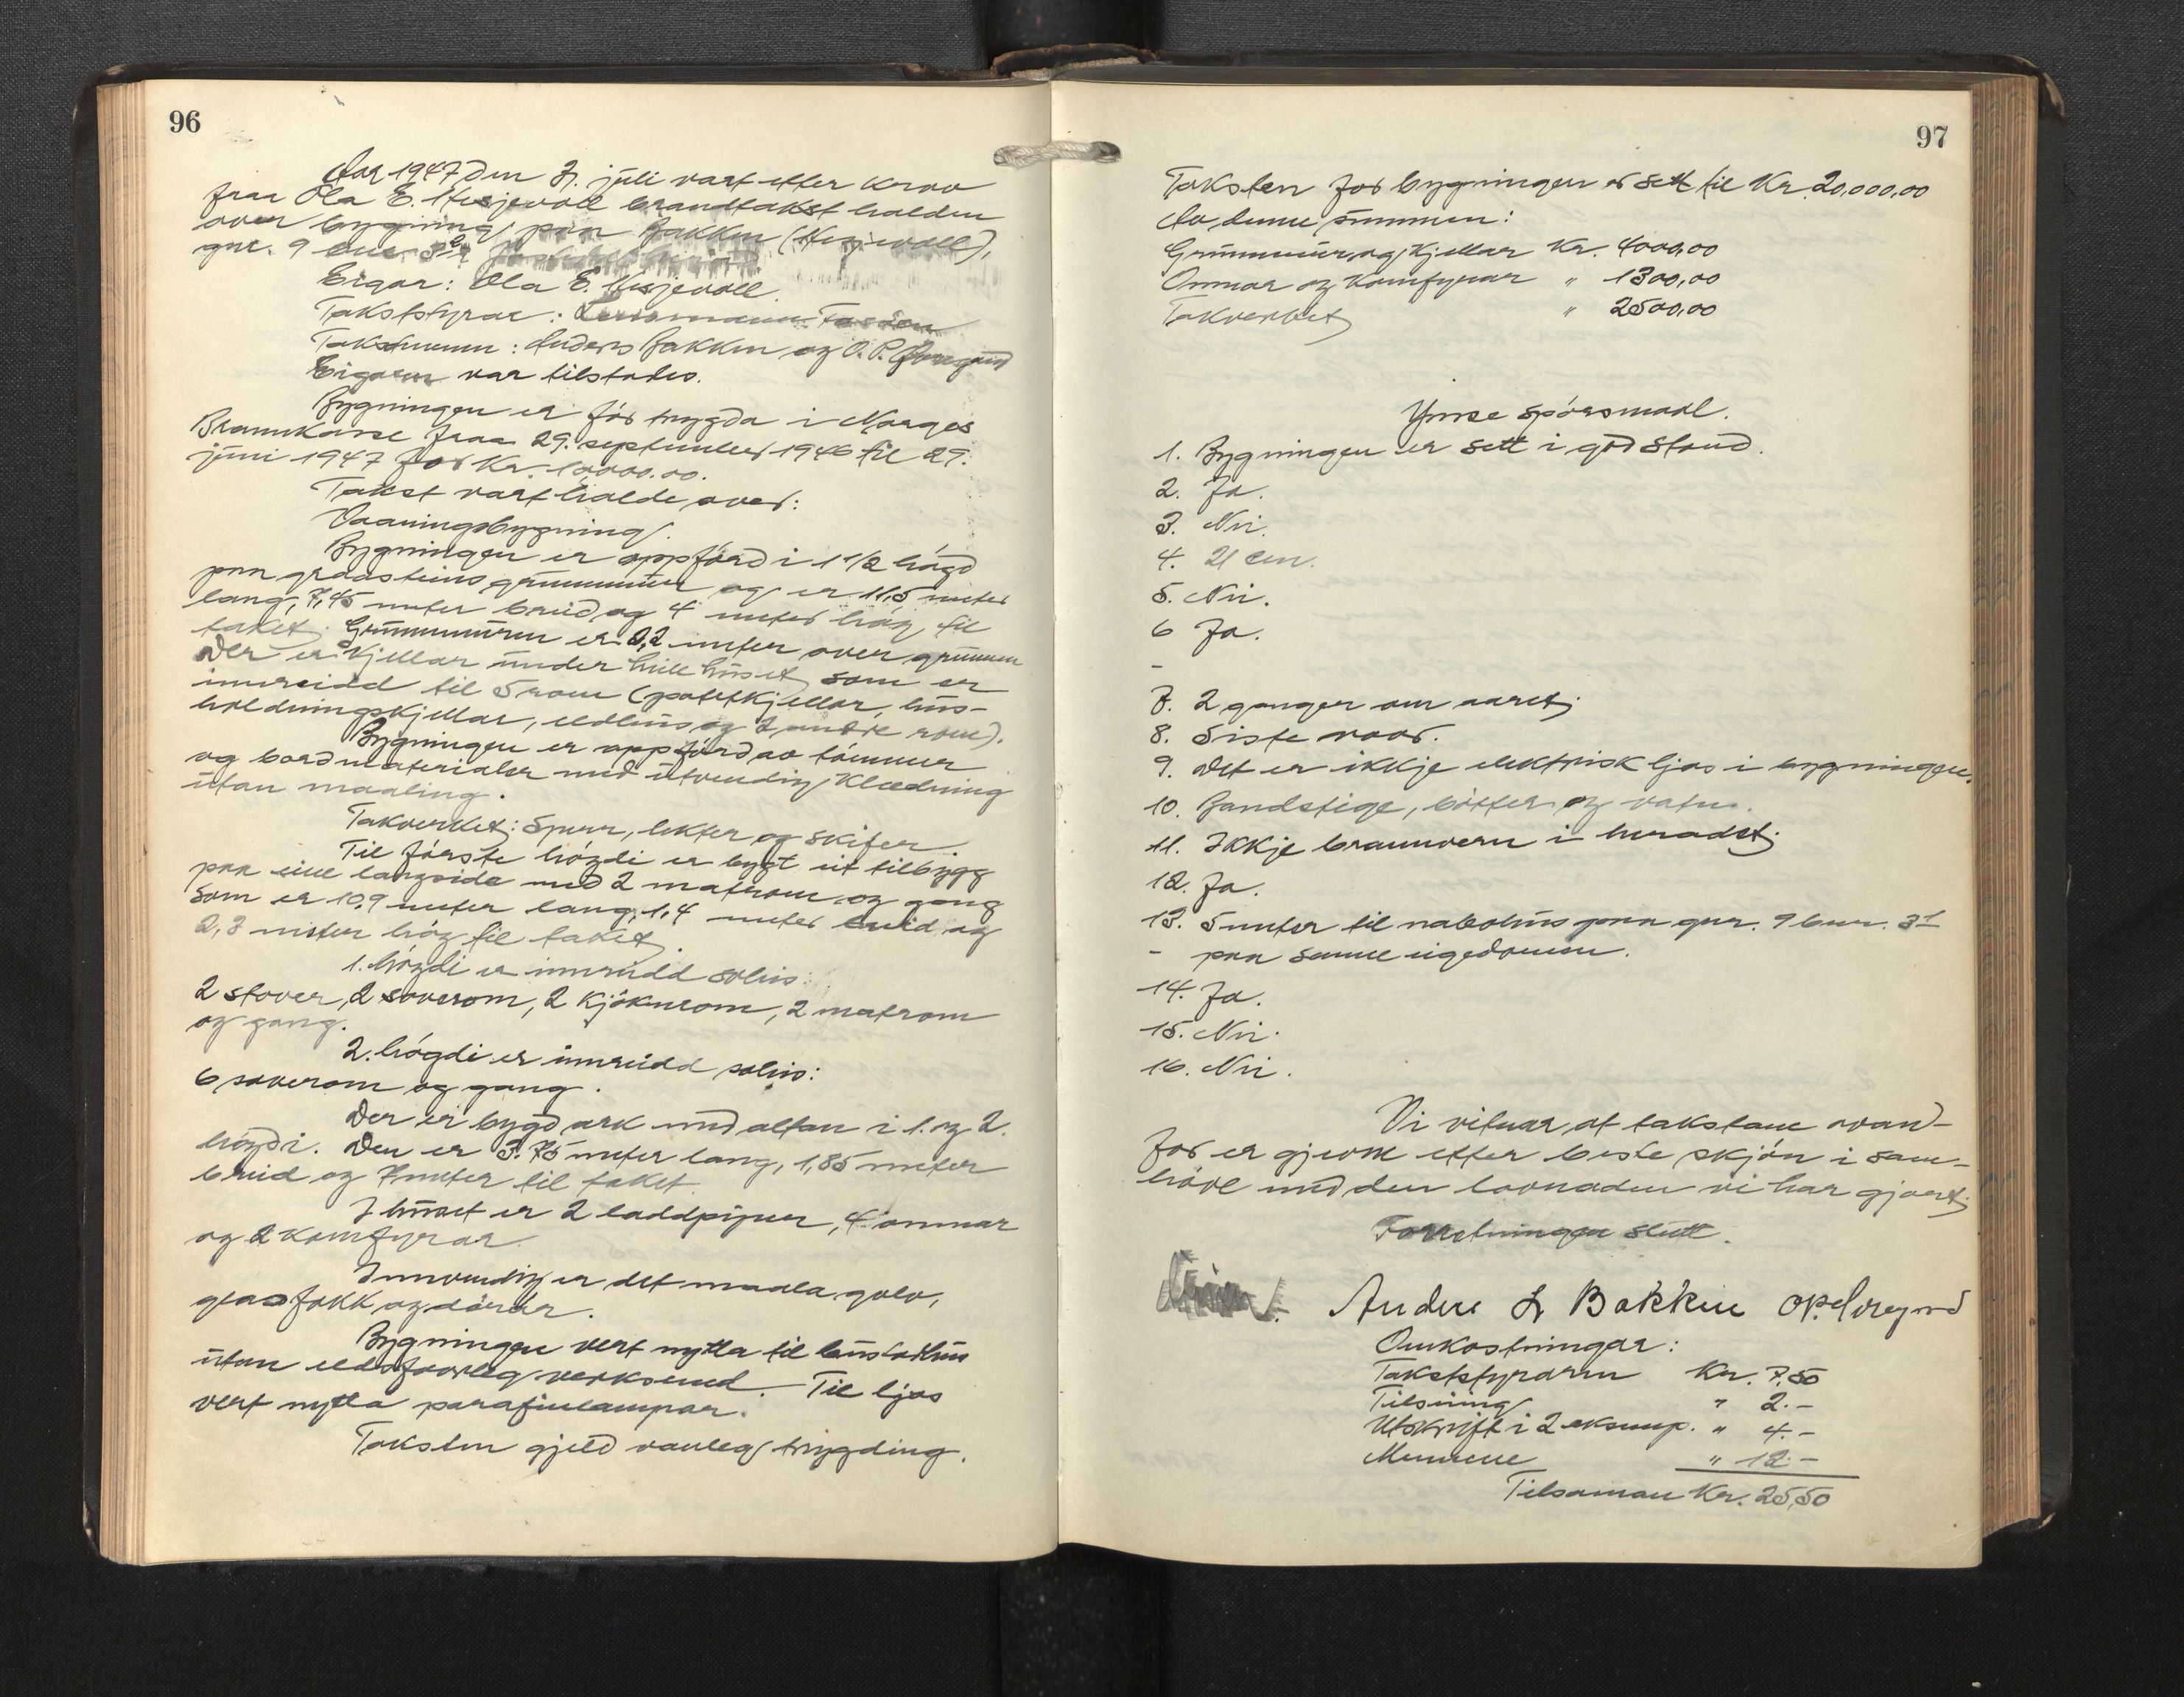 96
Aar 1947 den 7. juli vart etter krav
fraa Ola E. Hesjevoll brandtakst halden
over bygning paa Bakken (Hesjevoll),
gnr. 9 bnr. 3
Eigar: Ola E. Hesjevoll.
Takststyrar: Lensmann
Takstmenn: Anders Bakken og O. P.
Eigaren var tilstades.
Bygningen er før trygda i Norges
Brannkasse fraa 29. september 1946 til 29.
juni 1947 for Kr. 10,000.00.
Takst vart halde over:
Vaaningsbygning.
Bygningen er oppförd i 1 1/2 högd
paa graasteins grunnmur og er 11,5 meter
lang, 7,45 meter breid og 4 meter hög til
taket. Grunnmuren er 2,2 meter over grunnen
Der er kjellar under heile huset som er
innreidd til 5 rom (potetkjellar, hus-
holdningskjellar, eldhus og 2 andre rom).
Bygningen er oppförd av tömmer
og bordmaterialer med utvendig klædning
utan maaling.
Takverket: Sperr, lekter og skifer.
Til förste högdi er bygt eit tilbygg
paa eine langside med 2 matrom og gang
som er 10,9 meter lang, 1,4 meter breid og
2,3 meter hög til taket.
1. högdi er innreidd soleis:
2 stover, 2 soverom, 2 kjökenrom, 2 matrom
og gang.
2. högdi er innreidd soleis:
6 soverom og gang.
Der er bygd ark med altan i 1. og 2.
högdi. Den er 3.75 meter lang, 1,85 meter
breid og 7 meter til taket.
I huset er 2 laddpiper, 4 omnar
og 2 komfyrar.
Innvendig er det maala golv,
glasfokk og dörer.
Bygningen vert nytta til bustadhus
utan eldsfaarleg verksemd. Til ljos
vert nytta parafinlampar.
Taksten gjeld vanleg trygding.
97
Taksten for bygningen er sett til Kr. 20,000,00
Av denne summen:
Grunnmur og kjellar Kr. 4000,00
Omnar og komfyrar " 1300,00
Takverket " 2500,00
Ymse spörsmaal.
1. Bygningen er sett i god stand.
2. Ja.
3. Nei.
4. 21 cm.
5. Nei.
6 Ja.
-
7. 2 ganger om aaret.
8. Siste vaar.
9. Det er ikkje elektrisk ljos i bygningen.
10. Brandstige, bötter og vatn.
11. Ikkje brannvern i heradet.
12. Ja.
13. 5 meter til nabohus paa gnr. 9 bnr. 31
- paa same eigedomen.
14. Ja.
15. Nei.
16. Nei.
Vi vitnar at takstane ovan-
for er gjevne etter beste skjön i sam-
høve med den lovnaden vi har gjort.
Forretningen slutt.
Anders L Bakken O.P.
Omkostningar:
Takststyraren Kr. 7,50
Tilsiing " 2.-
Utskrift i 2 eksemp. " 4.-
Mennene " 12.-
Tilsaman Kr. 25,50